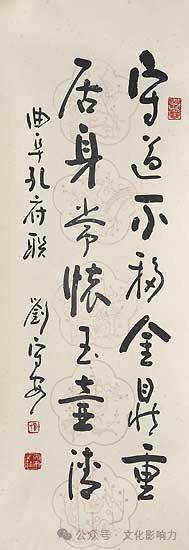 守道不移金鼎重
居身常怀玉壶清
曲阜孔府联
刘守安
公众号·文化影响力